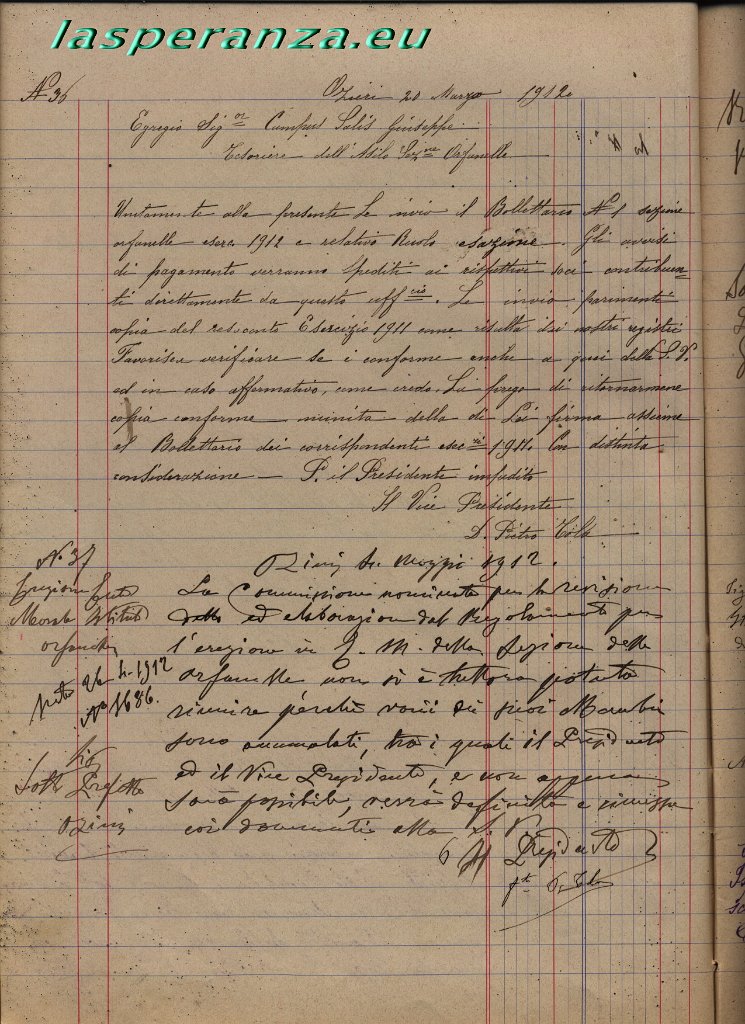 lasperanza.eu
N. 36 Ozieri 20 Marzo 1912
Egregio Sig.or Campus Salis Giuseppe
Tesoriere dell'Asilo Sez.ne Orfanelle
Unitamente alla presente Le invio il Bollettario N. 1 sezione
orfanelle eserc. 1912 e relativo Ruolo esazione. Gli avvisi
di pagamento verranno spediti ai rispettivi soci contribuen=
ti direttamente da questo uff.cio. Le invio parimenti
copia del resoconto Esercizio 1911 come risulta dai nostri registri
Favorisca verificare se è conforme anche a quei della S. V.
ed in caso affermativo, come credo, La prego di ritornarmene
copia conforme munita della di Lei firma assieme
al Bollettario dei corrispondenti 1911. Con distinta
considerazione — P. il Presidente impedito
Il Vice Presidente
D. Pietro Tola
N. 37
Erezione Ente
Morale Istituto
orfanelle
26-4-1912
N. 1686.
Sig.
Sotto Prefetto
Ozieri
Ozieri Maggio 1912.
La Commissione nominata per la revisione
ed elaborazione del Regolamento per
l'erezione in E. M. della Sezione delle
orfanelle non si è tuttora potuta
riunire perché varii dei suoi Membri
sono ammalati, tra i quali il Presidente
ed il Vice Presidente, e non appena
sarà possibile, verrà definita e rimessa
coi documenti alla S. V.
Il Presidente